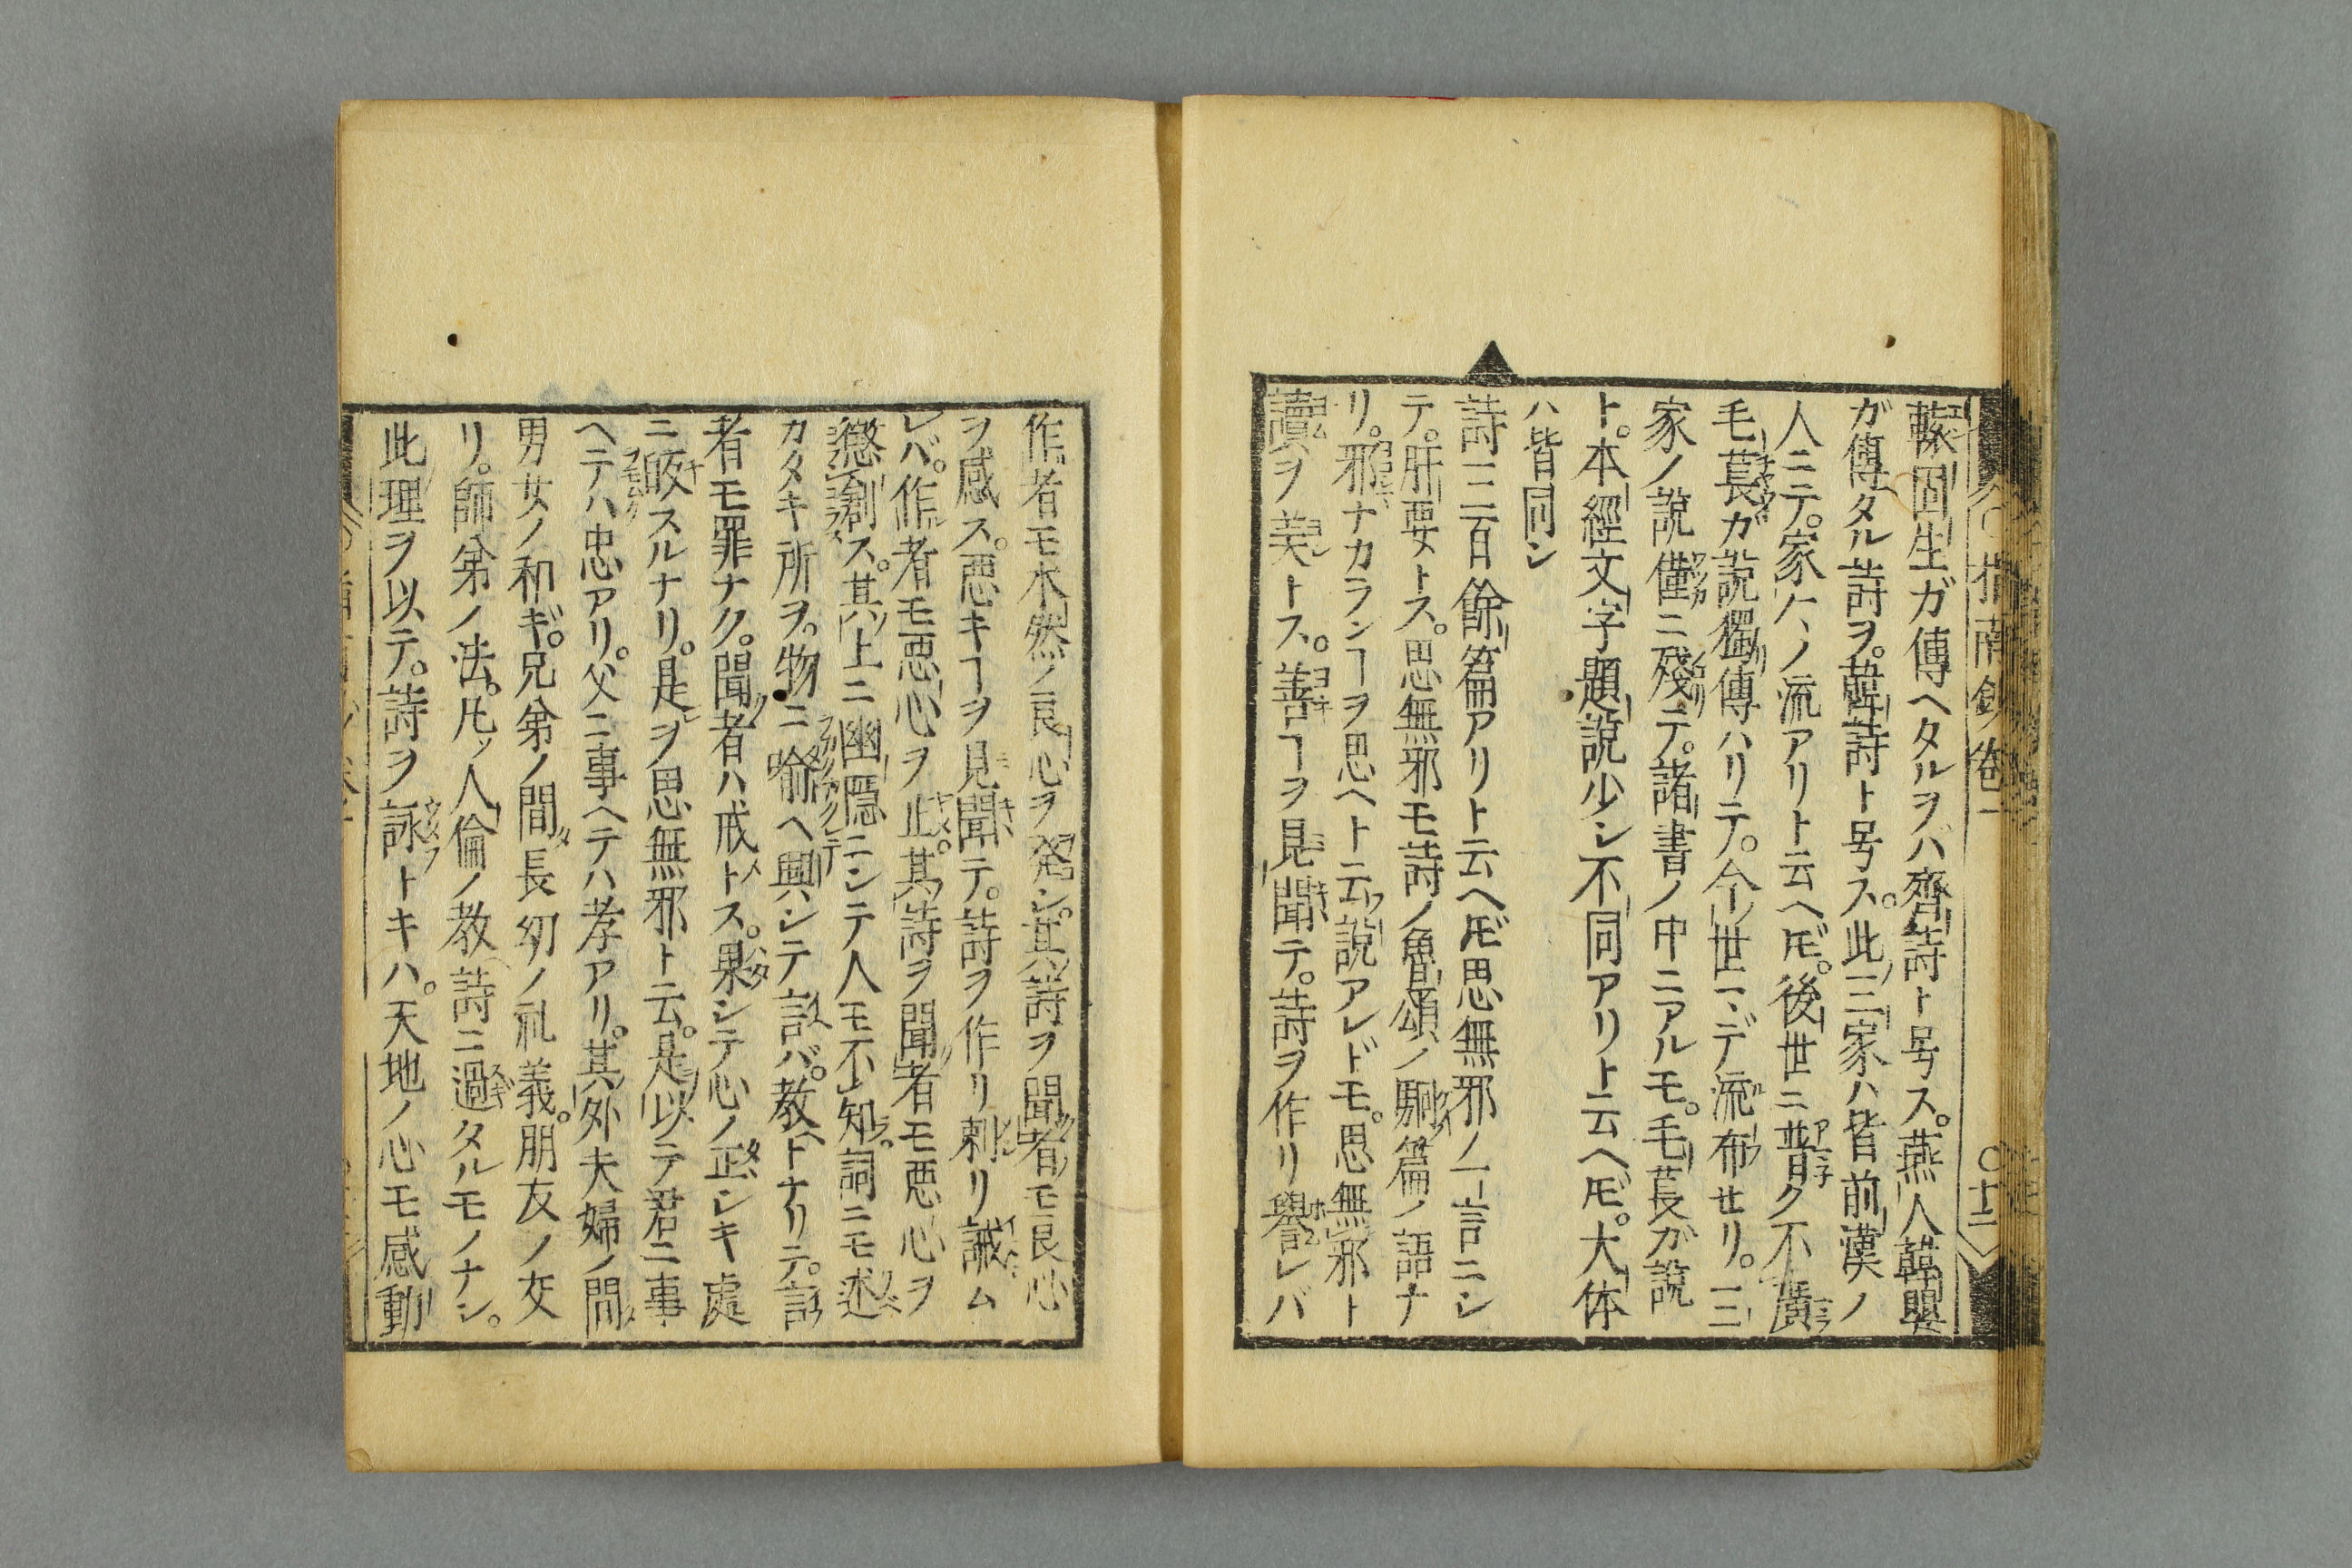 轅固生ガ傳ヘタルヲバ齊詩ト号ス。燕人韓嬰
ガ傳タル詩ヲ。韓詩ト号ス。此三家ハ皆前漢ノ
人ニテ。家々ノ流アリト云ヘ𪜈。後世ニ普ク不廣
毛萇ガ説獨傳ハリテ。今世ニ、デ流布セリ。三
家ノ説僅ニ殘テ。諸書ノ中ニアルモ。毛萇ガ説
ト。本經文字題説少シ不同アリト云ヘ𪜈。大体
ハ皆同シ
詩三百餘篇アリト云ヘ𪜈思無邪ノ一言ニシ
テ。肝要トス。思無邪モ詩ノ魯頌ノ駉篇ノ語ナ
リ。邪ナカランヿヲ思ヘト云説アレドモ。思無邪ト
讀ヲ義トス。善ヿヲ見聞テ。詩ヲ作リ譽レバ
指南鈔卷一
十二
作者モ本然ノ良心ヲ發シ。其詩ヲ聞者モ良心
ヲ感ス。悪キヿヲ見聞テ。詩ヲ作リ刺リ誡ム
レバ。作者モ悪心ヲ止。其詩ヲ聞者モ悪心ヲ
懲創ス。其上ニ幽隱ニシテ人モ不知。詞ニモ述
カタキ所ヲ。物ニ喩ヘ興シテ言バ。教トナリテ。言
者モ罪ナク。聞者ハ戒トス。果シテ心ノ正シキ處
ニ皈スルナリ。是ヲ思無邪ト云。是以テ君ニ事
ヘテハ忠アリ。父ニ事ヘテハ孝アリ。其外夫婦ノ間
男女ノ和ギ。兄弟ノ間長幼ノ礼義。朋友ノ交
リ。師弟ノ法。凡ソ人倫ノ教詩ニ過タルモノナシ。
此理ヲ以テ。詩ヲ詠トキハ。天地ノ心モ感動